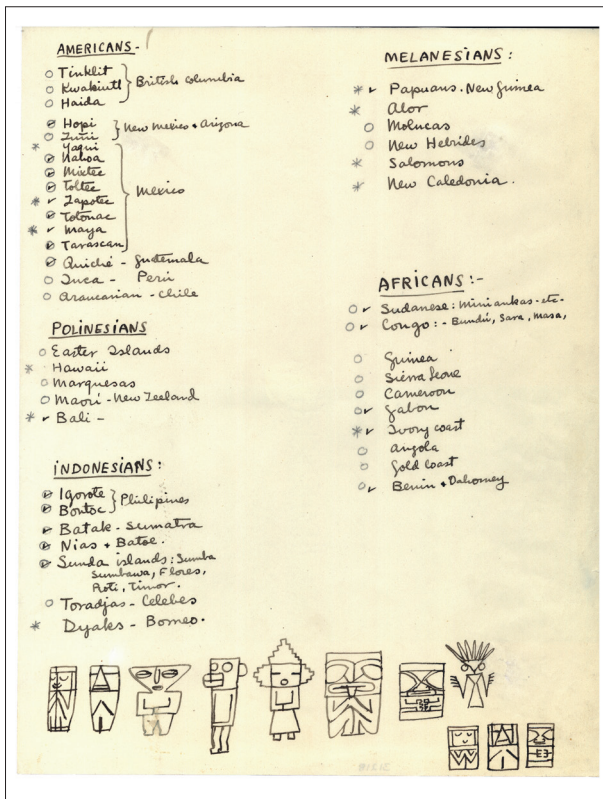 AMERICANS-
Tinklit
Kwakiutl
Haida
British Columbia
Hopi
Zuñi
New Mexico + Arizona
Yaqui
Nahoa
Mixtec
Toltec
Zapotec
Totonac
Maya
Tarascan
Mexico
Quiché - Guatemala
Inca - Perú
Araucarian - Chile
POLINESIANS
Easter Islands
Hawaii
Marquesas
Maori - New Zeeland
Bali -
INDONESIANS:
Igorote
Bontoc
Philipines
Batak - Sumatra
Nias + Batoe.
Sunda islands: Sumba
Sumbawa, Flores,
Roti, Timor.
Toradjas - Celebes
Dyaks - Borneo.
MELANESIANS:
Papuans. New Guinea
Alor
Molucas
New Hebrides
Salomons
New Caledonia.
AFRICANS:-
Sudanese: Miniankas - etc-
Congo: - Bundu, Sara, Masa,
Guinea
Sierra Leone
Cameroon
Gabon
Ivory coast
Angola
Gold Coast
Benin + Dahomey